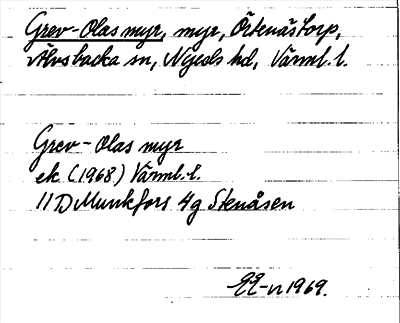 Grev-Olas myr, myr, Örtenästorp,
Älvsbacka sn, Nyeds hd, Värml. l.
Grev-Olas myr
ek. (1968) Värml. l.
11D Munkfors 4g Stenåsen
EE-n 1969.